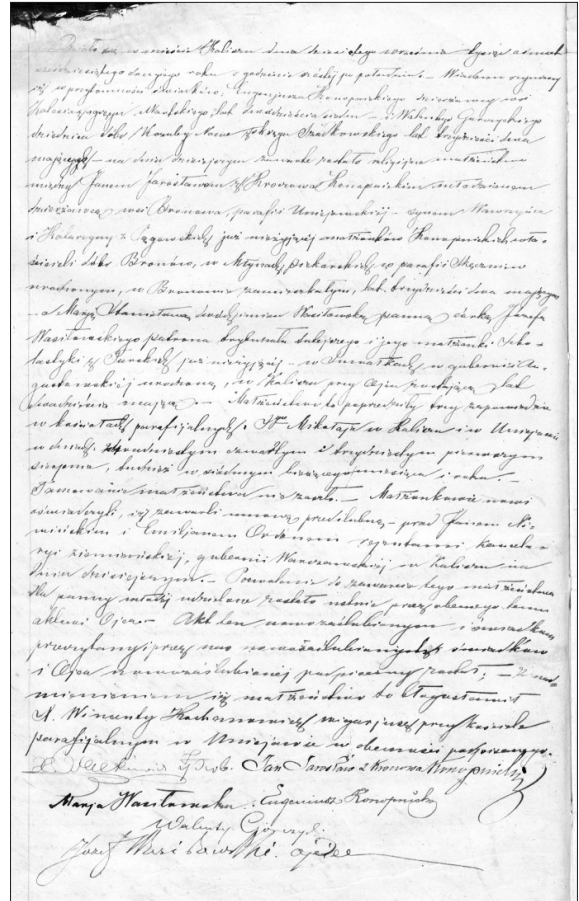 Działo się w mieście Kaliszu dnia dziesiątego września tysiąc ośmset
sześćdziesiątego drugiego roku o godzinie szóstej po południu. – Wiadomo czynimy
iż w przytomności świadków, Eugeniusza Konopnickiego dzierżawcy wsi
lat dwadzieścia siedm – i Walentego
dziedzica dóbr lat trzydzieści dwa
mających – na dniu dzisiejszym zawarte zostało religijne małżeństwo
między Janem Jarosławem z Kronowa Konopnickim młodzianem
dzierżawcą wsi Bronowa, parafii Uniejowskiej – synem Wawrzyńca
i Katarzyny z już nieżyjącej małżonków Konopnickich wła-
ścicieli dóbr Bronów, w w parafii
urodzonym, w Bronowie zamieszkałym, lat trzydzieści dwa mającym
– a Marją Stanisławą dwojga imion Wasiłowską panną córką Józefa
Wasiłowskiego patrona trybunału tutejszego i jego małżonki Scho-
lastyki z Turskich już nieżyjącej – w Suwałkach, w gubernii Au-
gustowskiej urodzoną, w Kaliszu przy Ojcu zostającą lat
dwadzieścia mającą – Małżeństwo to poprzedziły trzy zapowiedzie
w kościołach parafijalnych: Sgo Mikołaja w Kaliszu i w Uniejowie
w dniach: dwudziestym czwartym i trzydziestym pierwszym
sierpnia, tudzież w siódmym bieżącego miesiąca i roku. –
Tamowanie małżeństwa nie zaszło. – Małżonkowie nowi
oświadczyli, iż zawarli umowę przedślubną – przed Janem Ni-
wińskim i Emiljanem Ordonem rejentami Kancela-
ryi ziemiańskiej, gubernii Warszawskiej w Kaliszu na
dniu dzisiejszym. – Pozwolenie do zawarcia tego małżeństwa
dla panny młodej udzielone zostało ustnie przez obecnego temu
aktowi Ojca – Akt ten nowozaślubionym i świadkom
przeczytany i przez nas nowozaślubionych świadków
i Ojca nowozaślubionej podpisany został; – z nad-
mienieniem iż małżeństwo to błogosławił
X. Wincenty Kochanowicz wikarjusz przy kościele
parafijalnym w Uniejowie w obecności podpisanego.
Jan Jarosław z Kronowa Konopnicki
Marja Wasiłowska. Eugeniusz Konopnicki
Walenty
Józef Wasiłowski. ojciec